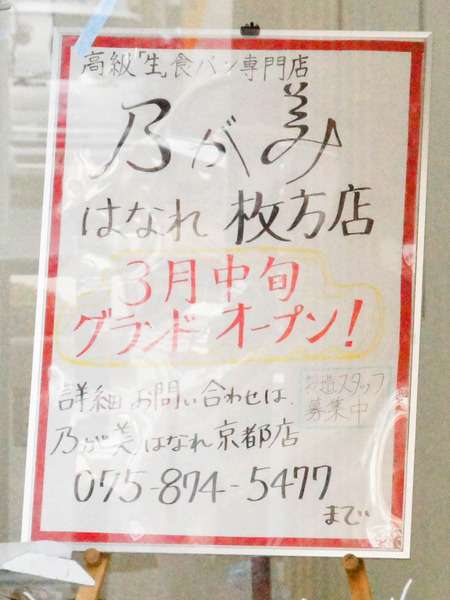 高級「生」食パン専門店
乃が美
はなれ 枚方店
3月中旬
グランド オープン!
製造スタッフ
募集中
詳細お問い合わせは、
乃が美はなれ京都店
075-874-5477
まで